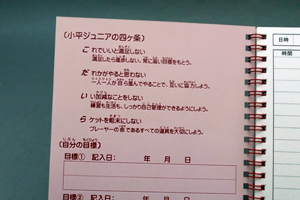 (小平ジュニアの四ヶ条)
これでいいと満足しない
満足したら進歩しない。常に高い目標をもとう。
だれかがやると思わない
一人一人が自ら進んでやることで、互いに協力しよう。
いい加減なことをしない
練習も生活も、しっかり自己管理ができるようにしよう。
らケットを粗末にしない
プレーヤーの魂であるすべての道具を大切にしよう。
(自分の目標)
目標① 記入日: 年 月 日
目標② 記入日: 年 月 日
日時
時間